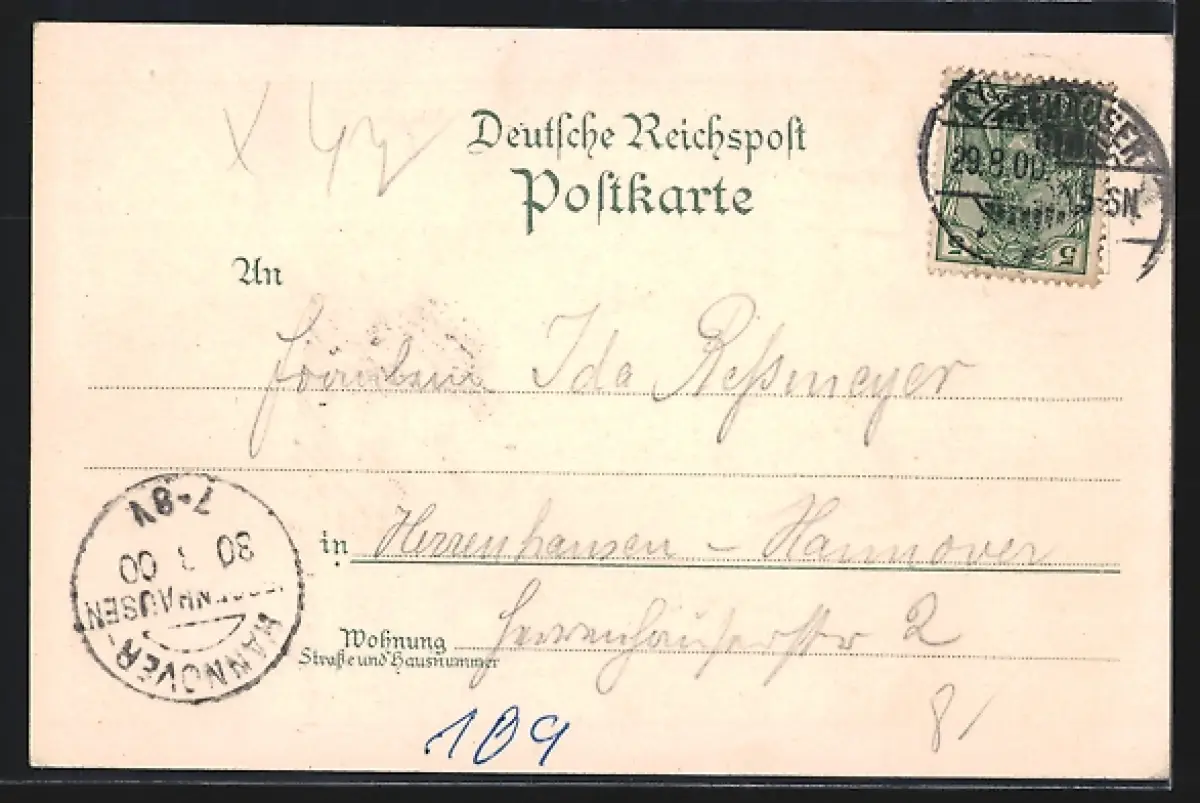 Deutsche Reichspost
Postkarte
29.8.00.
5-6N.
5 5
An
Fräulein Ida Reßmeyer
in Herrenhausen – Hannover
Wohnung Herrenhäuserstr 2
Straße und Hausnummer
7-8V
30 00
HANNOVER-
109
8/